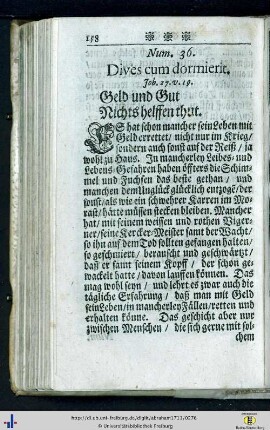 158
Num. 36.
Dives cum dormierit.
Job. 27. v. 19.
Geld und Gut
Nichts helffen thut.
ES hat schon mancher sein Leben mit
Geld errettet/ nicht nur im Krieg/
sondern auch sonst auf der Reiß / ja
wohl zu Haus. In mancherley Leibes- und
Lebens Gefahren haben öffters die Schim-
mel und Fuchsen das beste gethan / und
manchen dem Unglück glücklich entzogē/ der
sonst/ als wie ein schwehrer Karren im Mo-
rast/ hätte müssen stecken bleiben. Mancher
hat / mit seinem weissen und rothen
ner/ seine Kercker-Meister samt der Wacht/
so ihn auf dem Tod sollten gefangen halten/
so geschmiert/ berauscht und geschwärtzt/
daß er samt seinem Kopff / der schon ge-
wackelt hatte / davon lauffen können. Das
mag wohl seyn / und lehrt es zwar auch die
tägliche Erfahrung / daß man mit Geld
sein Leben/ in mancherley Fällen/ retten und
erhalten könne. Das geschicht aber nur
zwischen Menschen / die sich gerne mit sol-
chem
http://dl.ub.uni-freiburg.de/diglit/abraham1710/0276
© Universitätsbibliothek Freiburg